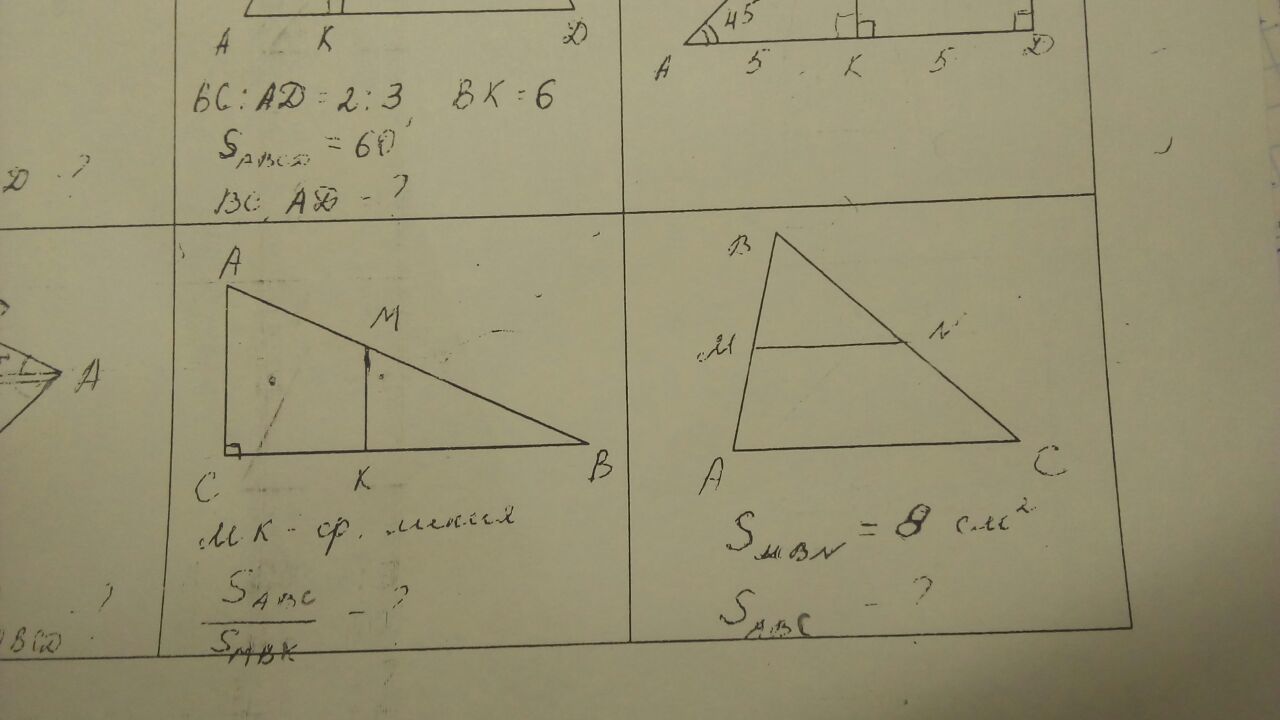 A K D
BC : AD = 2 : 3 BK = 6
S ABCD = 60
BC, AD - ?
45
A 5 K 5 D
D - ?
A
- ?
ABCD
A
M
C K B
MK - ср. линия
S ABC
S MBK
- ?
B
M N
A C
S MBN = 8 см²
S ABC - ?